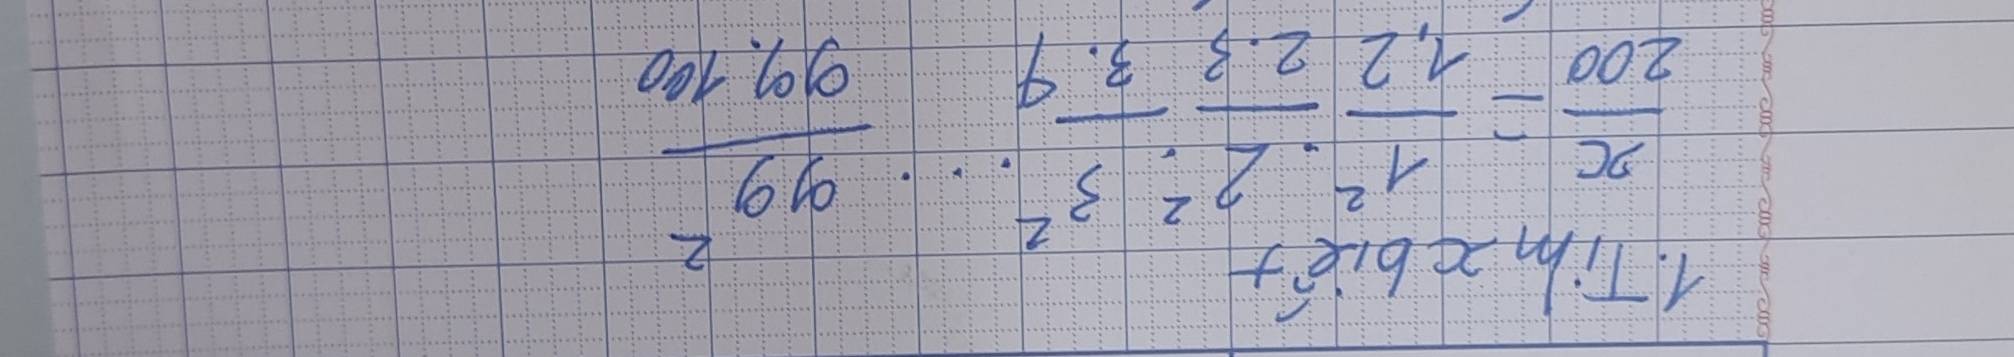 1. Tìm x biết
x/200 = 1²/1.2 . 2²/2.3 . 3²/3.4 ... 99²/99.100